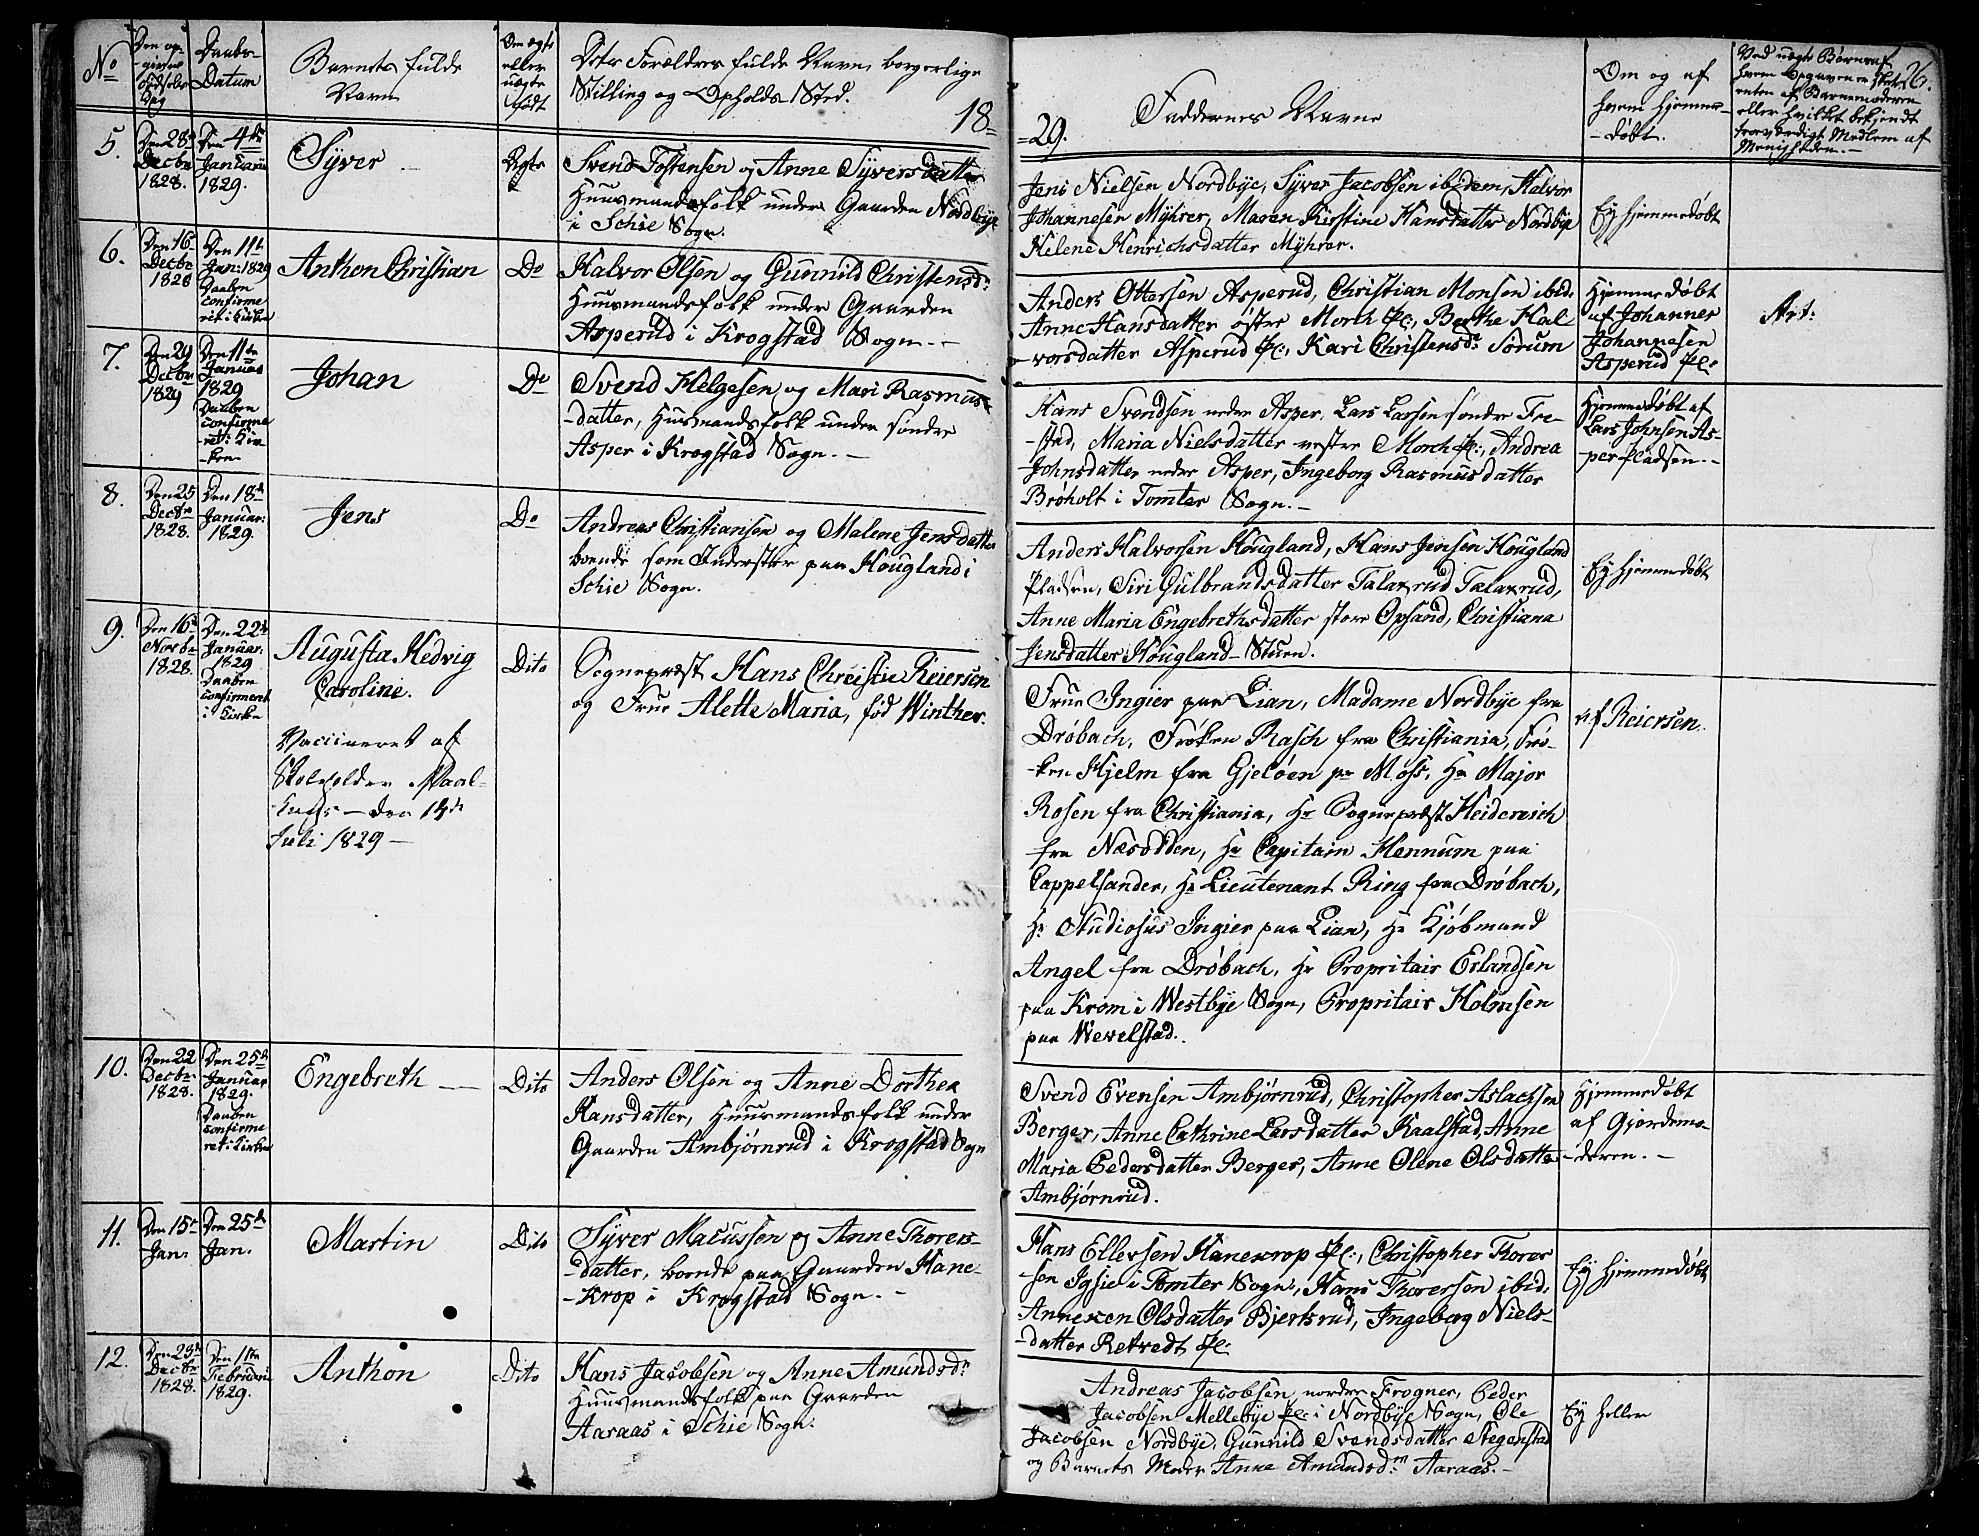 No
Den op-
givne
Fødsels
Dag
Daabs-
Datum
Barnets fulde
Navn
Om ægte
eller
uægte
født
Dets Forældres fulde Navn, borgerlige
Stilling og Opholds Sted.
18=
=29.
Faddernes Navne
Om og af
hvem hjemme-
-døbt.
Ved uægte Børn af
hvem Opgaven er skeet
enten af Barnemoderen
eller hvilket bekjendt
troværdigt Medlem af
Menigheden.-
26.
5.
Den 28de
Decbr
1828.
Den 4de
Januarii
1829.
Syver
Ægte
Svend Tostensen og Anne Syversdatter
Huusmandsfolk under Gaarden Nordbye
i Schie Sogn.
Jens Nielsen Nordbye, Syver Jacobsen ibidem, Halvor
Johannesen Myhrer, Maren Kirstine Hansdatter Nordbye
Helene Henrichsdatter Myhrer.
Ej hjemmedøbt
6.
Den 16
Decbr
1828
Den 11te
Jan: 1829
Daaben
confirme
ret i Kirken
Anthon Christian
Do
Halvor Olsen og Gunnild Christensdr
Huusmandsfolk under Gaarden
Asperud i Krogstad Sogn.-
Anders Ottersen Asperud, Christian Monsen ibid:
Anne Hansdatter østre Morch Pl:, Berthe Hal
vorsdatter Asperud Pl:, Kari Christensdr Sørum
Hjemmedøbt
af Johannes
Johannesen
Asperud Pl:
Art:
7.
Den 29
Decbr
1829
Den 11te
Januar
1829
Daaben
confirme
-ret i Kir
-ken
Johan
Do
Svend Helgesen og Mari Rasmus-
-datter, Huusmandsfolk under søndre
Asper i Krogstad Sogn.-
Hans Svendsen nedre Asper, Lars Larsen søndre Fre-
-stad, Maria Nielsdatter vestre Morch Pl:, Andrea
Johnsdatter nedre Asper, Ingeborg Rasmusdatter
Brøholt i Tomter Sogn.-
Hjemmedøbt af
Lars Johnsen As-
per Pladsen.-
8.
Den 25
Decbr
1828.
Den 18de
Januar:
1829.
Jens
Do
Andreas Christiansen og Malene Jensdatter
boende som Inderster paa Hougland i
Schie Sogn.
Anders Halvorsen Hougland, Hans Jensen Hougland
Pladsen, Siri Gulbrandsdatter Talaxrud Talaxrud,
Anne Maria Engebrethsdatter store Opsand, Christiana
Jensdatter Hougland-Stuen.
Ej hjemmedøbt
9.
Den 16de
Novbr
1828.
Den 22de
Januar:
1829
Daaben
confirmeret
i Kirken
Augusta Hedvig
Caroline.
Vaccineret af
Skoleholder
den
Juli 1829 -
Dito
Sognepræst Hans Christie Reiersen
og Frue Alette Maria, fød Winther.
Frue Ingier paa Lian, Madame Nordbye fra
Drøbach, Frøken Rasch fra Christiania, Frø-
-ken Hjelm fra Gjeløen pr Moss, Hr Major
Rosen fra Christiania, Hr Sognepræst Heiderich
fra Næsodden, Hr Capitain Hennum paa
Cappelsander, Hr Lieutenant Ring fra Drøbach,
Hr Studiosus Ingier paa Lian, Hr Kjøbmand
Angel fra Drøbach, Hr Propritair Erlandsen
paa Krom i Westbye Sogn, Propritair Holmsen
paa Wevelstad.
af Reiersen.
10.
Den 22
Decbr
1828.
Den 25de
Januar
1829.
Daaben
confirme
ret i Kirken
Engebreth
Dito
Anders Olsen og Anne Dorthea
Hansdatter, Huusmandsfolk under
Gaarden Ambjørnrud i Krogstad Sogn
Svend Evensen Ambjørnrud, Christopher Aslachsen
Berger, Anne Cathrine Larsdatter Kaalstad, Anne
Maria Pedersdatter Berger, Anne Olene Olsdatter
Ambjørnrud.
Hjemmedøbt
af Gjordemo-
-deren.-
11.
Den 15de
Jan:
Den 25de
Jan.
Martin
Dito
Syver Macussen og Anne Thorers-
-datter, boende paa Gaarden Hane-
-Krop i Krogstad Sogn.-
Hans Ellevsen Hanekrop Pl:, Christopher Thorer
-sen Igsie i Tomter Sogn, Hans Thorersen ibid,
Anneken Olsdatter Bjerksrud, Ingeborg Niels-
-datter Retvedt Pl:
Ej hjemmedøbt
12.
Den 23de
Decbr
1828.
Den 11te
Februarii
1829.
Anthon
Dito
Hans Jacobsen og Anne Amundsdr
Huusmandsfolk paa Gaarden
Aaraas i Schie Sogn.
Andreas Jacobsen nordre Frogner, Peder
Jacobsen Mellebye Pl: i Nordbye Sogn, Ole
Jacobsen Nordbye, Gunnild Svendsdatter Stegenstad
og Barnets Moder Anne Amundsdr Aaraas.-
Ej heller